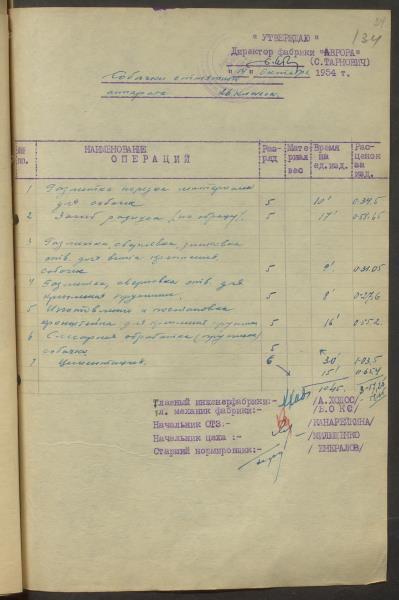 134
" УТВЕРЖДАЮ "
Директор фабрики "АВРОРА"
(С.ТАРНОВИЧ)
"14" октября 1954 г.
Собачки
аппарата 26 класса.
НАИМЕНОВАНИЕ
ОПЕРАЦИЙ
Раз-
ряд
Мате
риал
вес
Время
на
ед.изд.
Рас-
ценок
за
изд.
№№
пп.
1 Разметка нарезка материала
для собачек 5 10' 0-34,5
2 Загиб радиуса (по образцу). 5 17' 0-58,65
3 Разметка, сверловка, зенковка
отв. для винта крепления
собачек 5 9' 0-31.05
4 Разметка, сверловка отв. для
крепления пружины. 5 8' 0-27,6
5 Изготовление и постановка
кронштейна для крепления пружины 5 16' 0-55.2
6 Слесарная обработка (пружины)
собачки 5 30' 1-03,5
7 Цементация. 6 15' 0-65,4
1ч45.
Главный инженер фабрики:- /А.ХОДОС/
Гл. механик фабрики:- /Б.О К С/
Начальник ОТЗ:- /КАНАРЕЙКИНА/
Начальник цеха :- /МИЛЬШЕНКО
Старший нормировщик:- / ГЕНЕРАЛОВ/